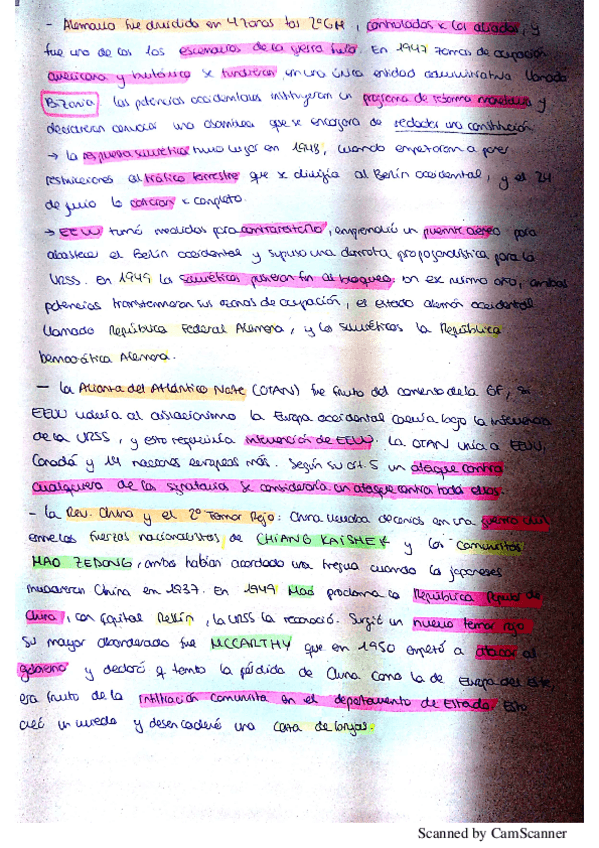 - Alemania fue dividida en 4 zonas tras 2ª GM, controladas x los aliados, y
fue uno de los los escenarios de la guerra fría. En 1947 zonas de ocupación
americana y británica se fundieron, en una única entidad administrativa llamada
Bizonia. Las potencias occidentales instituyeron un programa de reforma monetaria y
decidieron convocar una asamblea que se encargara de redactar una constitución.
→ La respuesta soviética tuvo lugar en 1948, cuando empezaron a poner
restricciones al tráfico terrestre que se dirigía al Berlín occidental, y el 24
de junio lo x completo.
→ EEUU tomó medidas para contrarrestarlo, emprendió un puente aéreo para
abastecer el Berlín occidental y supuso una derrota propagandística para la
URSS. En 1949 los soviéticos pusieron fin al bloqueo; en ese mismo año, ambas
potencias transformaron sus zonas de ocupación, el estado alemán occidental
llamado República Federal Alemana, y los soviéticos la República
Democrática Alemana.
- La Alianza del Atlántico Norte (OTAN) fue fruto del comienzo de la GF, si
EEUU volvía al aislacionismo la Europa occidental caería bajo la influencia
de la URSS, y esto requería intervención de EEUU. La OTAN unía a EEUU,
Canadá y 14 naciones europeas más. Según su art. 5 un ataque contra
cualquiera de los signatarios se consideraría un ataque contra todos ellos.
- La Rev. China y el 2º Temor Rojo: China llevaba decenios en una guerra civil
entre las fuerzas nacionalistas de CHIANG KAISHEK y los comunistas
MAO ZEDONG, ambos habían acordado una tregua cuando los japoneses
invadieron China en 1937. En 1949 Mao proclama la República Popular de
China, con capital Pekín, la URSS la reconoció. Surgió un nuevo temor rojo
Su mayor abanderado fue MCCARTHY que en 1950 empezó a atacar al
gobierno y declaró q tanto la pérdida de China como la de Europa del Este,
era fruto de la infiltración comunista en el departamento de Estado. Esto
creó un miedo y desencadenó una caza de brujas.
Scanned by CamScanner